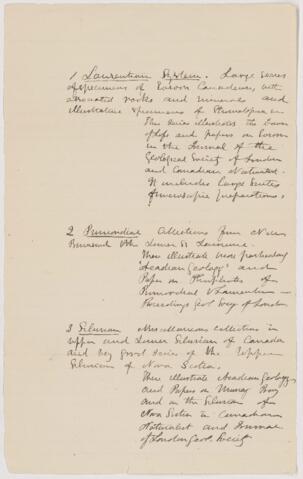 1 Laurentian System. Large series
of specimens of Eozoon Canadense, with
associated rocks and minerals and
illustrative specimens of Stromatopora &c
This series illustrates the Dawn
of Life and papers on Eozoon
in the Journal of the
Geological Society of London
and Canadian Naturalist.
It includes large series
of microscopic preparations.
2 Primordial Collections from New
Brunswick & the Lower St Lawrence.
These illustrate
"Acadian Geology" and
Paper on
Primordial
Proceedings Geol Socy of London
3 Silurian Miscellaneous collection in
upper and Lower Silurian of Canada
and very good series of the Upper
Silurian of Nova Scotia.
These illustrate Acadian Geology
and Papers on Murray Bay
and on the Silurian of
Nova Scotia in Canadian
Naturalist and Journal
of London Geol. Society